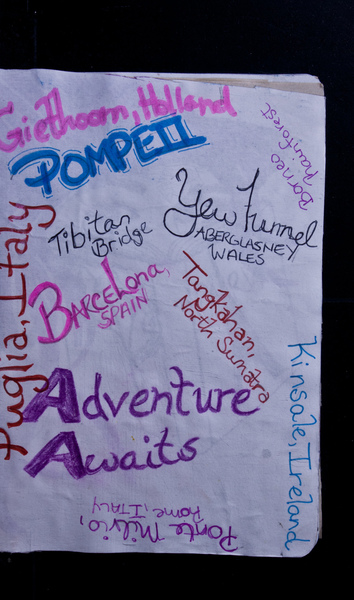 Giethoorn, Holland
POMPEII
Borneo
Rainforest
Yew Tunnel
ABERGLASNEY
WALES
Tibitan
Bridge
Puglia, Italy
Barcelona,
SPAIN
Tangkahan,
North Sumatra
Adventure
Awaits
Kinsale, Ireland
Ponte Milvio,
Rome, ITALY